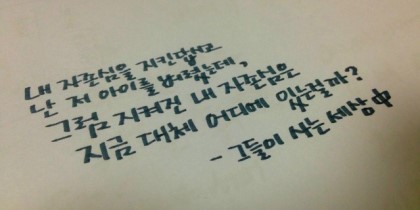 내 자존심을 지킨답시고
난 저 아이를 버렸는데,
그럼 지켜진 내 자존심은
지금 대체 어디에 있는걸까?
- 그들이 사는 세상 中